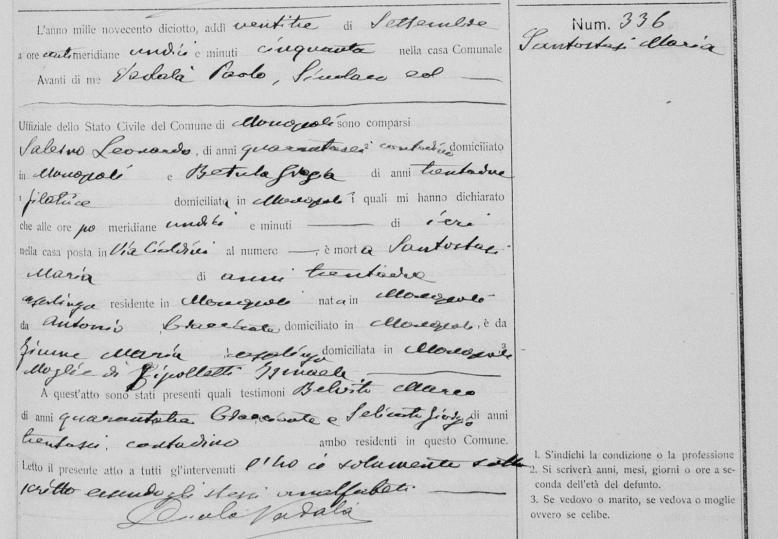 L'anno mille novecento diciotto, addì ventitre di Settembre
a ore antimeridiane undici e minuti cinquanta nella casa Comunale
Avanti di me Vadalà Paolo, Sindaco ed
Uffiziale dello Stato Civile del Comune di Monopoli sono comparsi
Salerno Leonardo, di anni quarantasei contadino domiciliato
in Monopoli e Betula di anni trentadue
filatrice domiciliata in Monopoli i quali mi hanno dichiarato
che alle ore po meridiane undici e minuti di ieri
nella casa posta in Via Cialdini al numere , è mort a Santostasi
Maria di anni trentadue
casalinga residente in Monopoli nata in Monopoli
da Antonio Bracciante, domiciliato in Monopoli, è da
Maria casalinga domiciliata in Monopoli 3
Moglie di
A quest'atto sono stati presenti quali testimoni Belvito Marco
di anni Bracciante e di anni
trentasei, contadino ambo residenti in questo Comune.
Letto il presente atto a tutti gl'intervenuti l'ho io solamente sotto
scritto essendo gli stessi analfabeti
Paolo Vadalà
Num. 336
Santostasi Maria
1. S'indichi la condizione o la professione
2. Si scriverà anni, mesi, giorni o ore a se-
conda dell'età del defunto.
3. Se vedovo o marito, se vedova o moglie
ovvero se celibe.